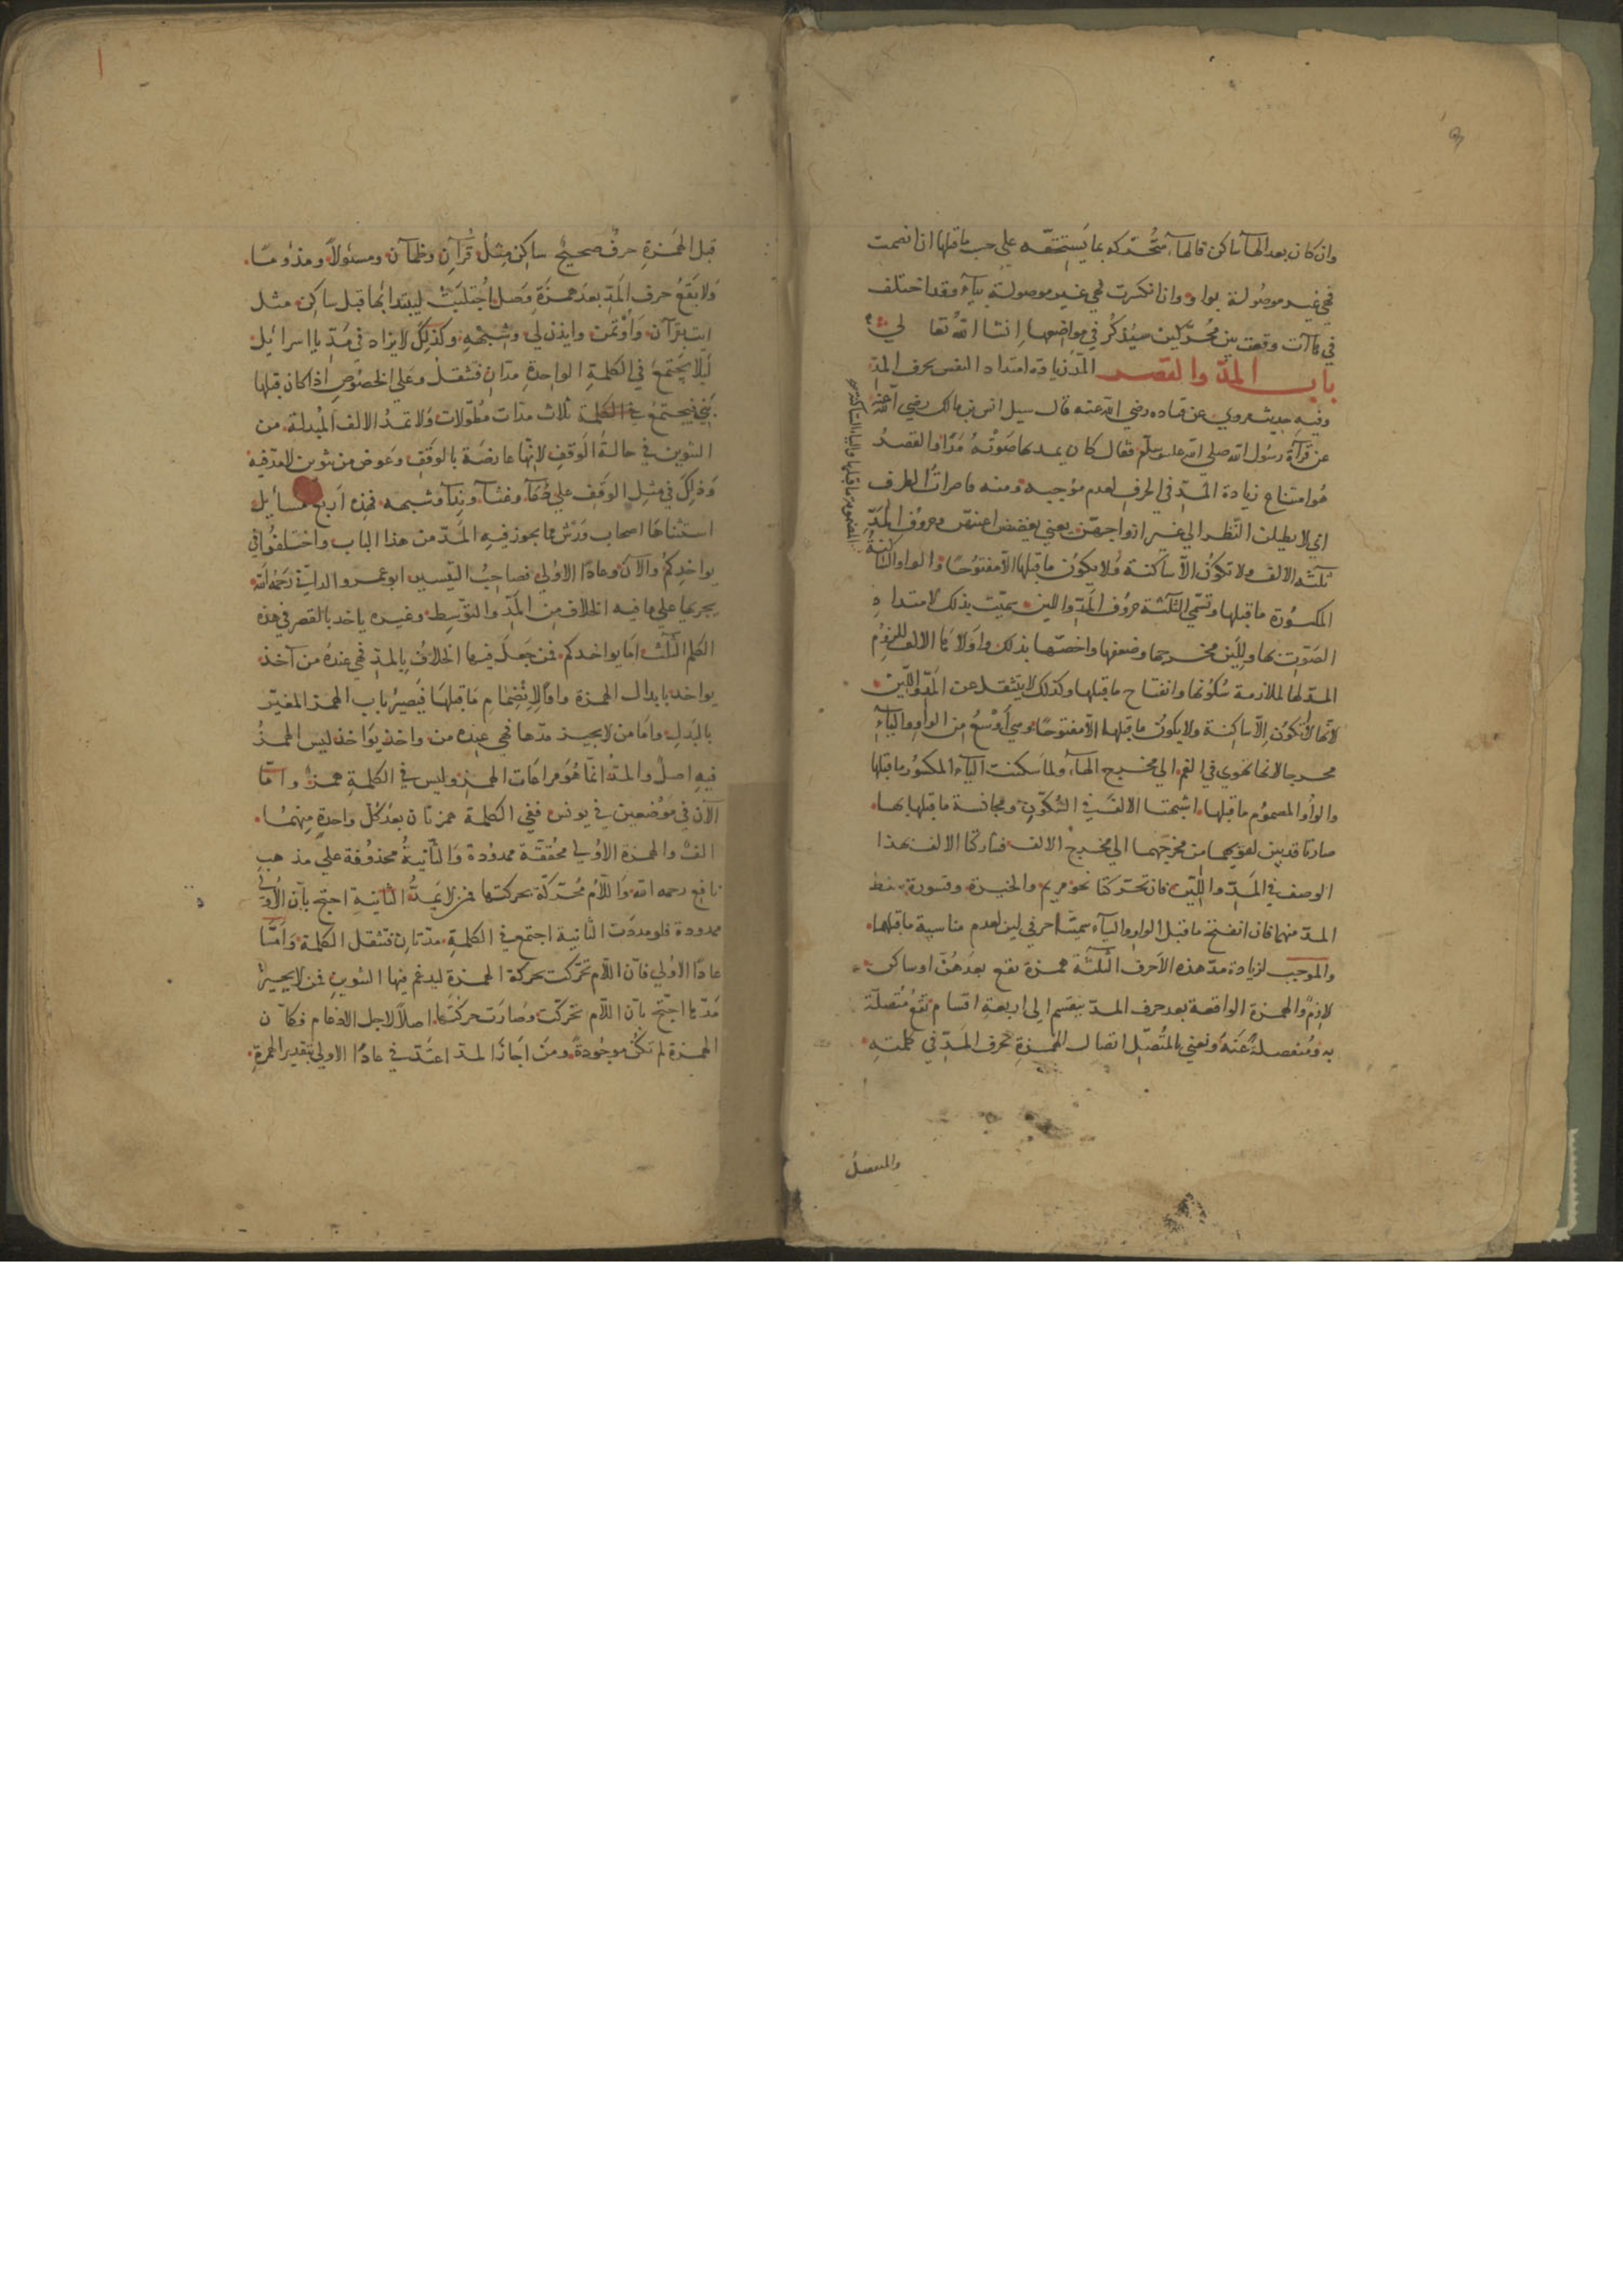 وان كان بعد الهآ ساكن فالهآء متحركه بما يستحقه علي حسب ما قبلها ان انضمت
فهي غير موصولة بواو وان انكسرت فهي غير موصولة بيآء وقد اختلف
في هاآت وقعت بين محركين سيذكر في مواضعها ان شا الله تعا لي
باب المد والقصر المد زيادة امتداد النفس بحرف المد
وفيه حديث مروي عن قتاده رضي الله عنه قال سيل انس بن مالك رضي الله عنه
عن قرآة رسول الله صلي الله عليه وسلم فقال كان يمد بها صوته مدا والقصر
هو امتناع زيادة المد في الحرف لعدم موجبه ومنه قاصرات الطرف
اي لا يطلن النظر الي غير ازواجهن يعني يغضض اعينهن وحروف المد
ثلثه الالف ولا تكون الا ساكنة ولا يكون ما قبلها الا مفتوحا والواو الساكنة
المضمومة ما قبلها والياء الساكنة
المكسورة ما قبلها وتسمي الثلثة حروف المد واللين سميت بذلك لامتداد
الصوت بها ولين مخرجها وضعفها واخصها بذلك واولاها الالف للزوم
المد لها لملازمة سكونها وانفتاح ما قبلها وكذلك لا ينتقل عن المد واللين
لانها لا تكون الا ساكنة ولا يكون ما قبلها الا مفتوحا وهي اوسع من الواو والياء
مخرجا لانها تهوي في الفم الي مخرج الهآء ولما سكنت اليآء المكسور ما قبلها
والواو المضموم ما قبلها اشبهتا الالف في السكون ومجانسة ما قبلها بها
صارتا مدتين لهويهما من مخرجهما الي مخرج الالف فشاركتا الالف بهذا
الوصف في المد واللين فان تحركتا نحو مريم والخيرة وقسورة سقط
المد منهما فان انفتح ما قبل الواو واليآء سميتا حرفي لين لعدم مناسبة ما قبلهما
والموجب لزيادة مد هذه الاحرف الثلثة همزة تقع بعدهن او ساكن
لازم والهمزة الواقعة بعد حرف المد ينقسم الي اربعة اقسام تقع متصلة
به ومنفصلة عنه ونعني بالمتصل اتصال الهمزة بحرف المد في كلمته
والمنفصل
قبل الهمزة حرف صحيح ساكن مثل قرآن وظمآن ومسئولا ومذؤما
ولا يقع حرف المد بعد همزة وصل اجتلبت ليبتدا بها قبل ساكن مثل
ايت بقرآن واؤتمن وايذن لي وشبهه وكذلك لا يزاد في مد يا اسرائيل
ليلا يجتمع في الكلمة الواحدة مدان فتثقل وعلي الخصوص اذا كان قبلها
بني فيجتمع في الكلمة ثلاث مدات مطولات ولا تمد الالف المبدلة من
التنوين في حالة الوقف لانها عارضة بالوقف وعوض من تنوين لا مد فيه
وذلك في مثل الوقف علي جفآ وغثآ وندآ وشبهه فهذه اربع مسائل
استثناها اصحاب ورش مما يجوز فيه المد من هذا الباب واختلفوا في
يواخذكم والآن وعادا الاولي فصاحب التيسير ابو عمرو الداني رحمه الله
يجريها علي ما فيه الخلاف من المد والتوسط وغيره ياخذ بالقصر في هذه
الكلم الثلث اما يواخذكم فمن جعل فيها الخلاف بالمد فهي عنده من آخذ
يواخذ بابدال الهمزة واوا لانضمام ما قبلها فيصير باب الهمز المغير
بالبدل واما من لا يجيز مدها فهي عنده من واخذ يواخذ ليس الهمز
فيه اصل والمد انما هو مراعات الهمز وليس في الكلمة همز واما
الآن في موضعين في يونس ففي الكلمة همزتان بعد كل واحدة منهما
الف والهمزة الاولي محققة ممدودة والثانية محذوفة علي مذهب
نافع رحمه الله واللام محركة بحركتها فمن لا يمد الثانية احتج بان الاولي
ممدودة فلو مددت الثانية اجتمع في الكلمة مدتان فتثقل الكلمة واما
عادا الاولي فان اللام تحركت بحركة الهمزة ليدغم فيها التنوين فمن لا يجيز
مدها احتج بان اللام تحركت وصارت حركتها اصلا لاجل الادغام فكان
الهمزة لم تكن موجودة ومن اجاز المد اعتد في عادا الاولي بتقدير الهمزة